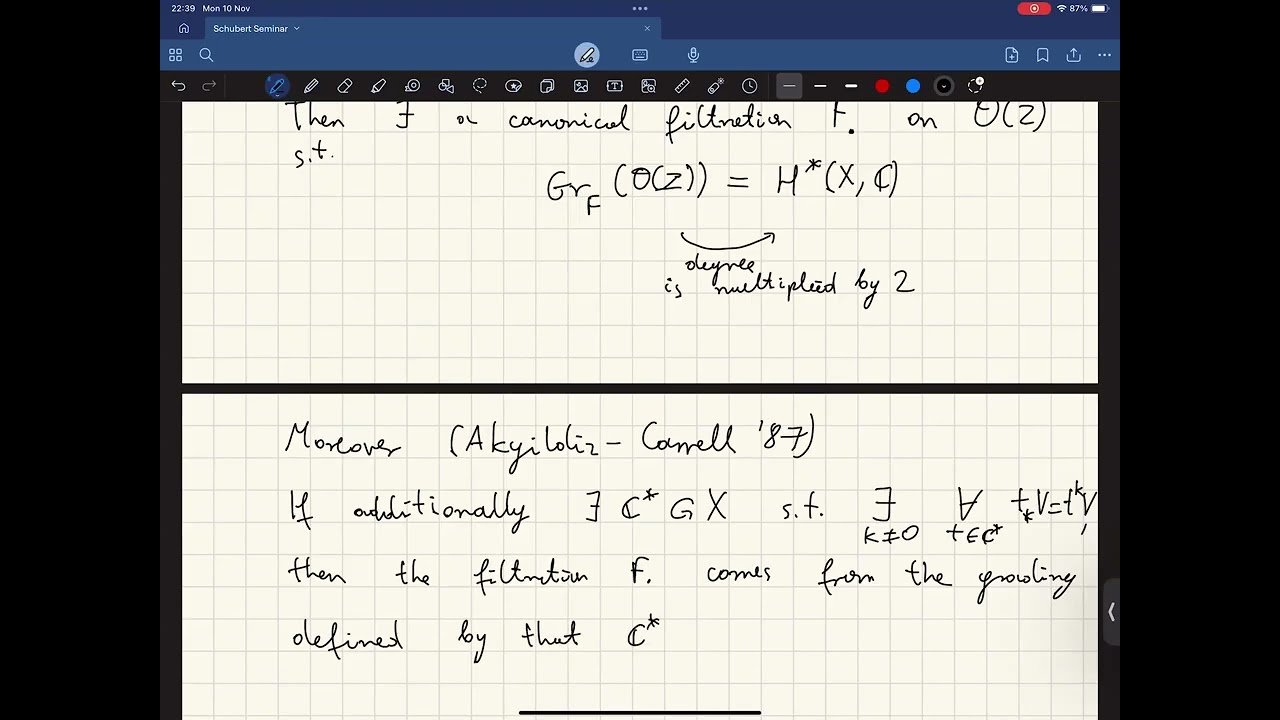 22:39 Mon 10 Nov
87%
Schubert Seminar
Then ∃ a canonical filtration F. on O(Z)
s.t.
Gr_F (O(Z)) = H*(X, ℂ)
degree
is multiplied by 2
Moreover (Akyildiz - Carrell '87)
If additionally ∃ ℂ* G X s.t. ∃ ∀ t_*V=t^kV,
k≠0 t∈ℂ*
then the filtration F. comes from the grading
defined by that ℂ*